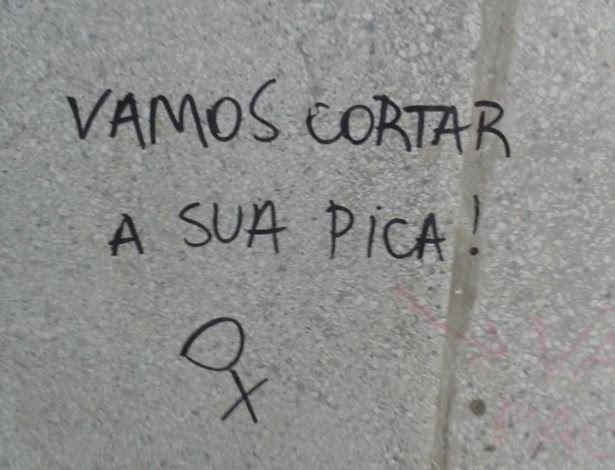 VAMOS CORTAR
A SUA PICA!